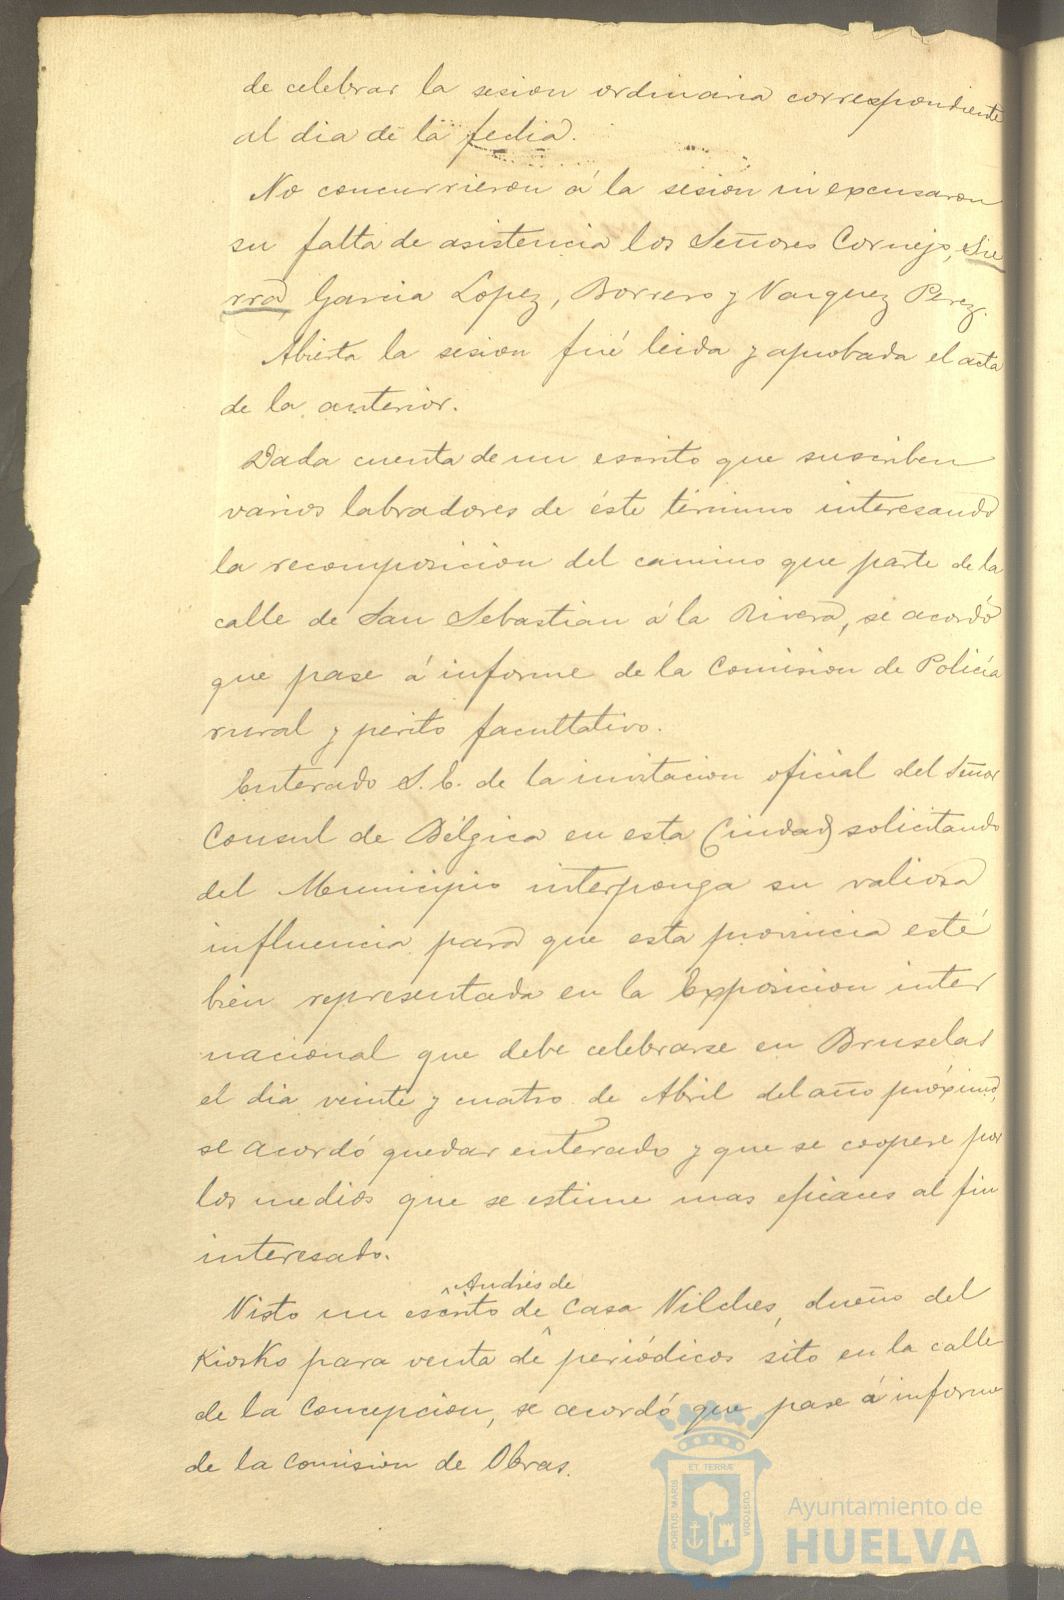 de celebrar la sesion ordinaria correspondiente
al dia de la fecha.
No concurrieron á la sesion ni excusaron
su falta de asistencia los Señores Cornejo, Sie
rra, Garcia Lopez, Borrero y Vazquez Perez.
Abierta la sesion fué leida y aprobada el acta
de la anterior.
Dada cuenta de un escrito que suscriben
varios labradores de éste término interesando
la recomposicion del camino que parte de la
calle de San Sebastian á la Rivera, se acordó
que pase á informe de la Comision de Policía
rural y perito facultativo.
Enterado S. E. de la invitacion oficial del Señor
Consul de Bélgica en esta Ciudad solicitando
del Municipio interponga su valiosa
influencia para que esta provincia esté
bien representada en la Exposicion inter
nacional que debe celebrarse en Bruselas
el dia veinte y cuatro de Abril del año próximo,
se acordó quedar enterado y que se coopere por
los medios que se estime mas eficaces al fin
interesado.
Andrés de
Visto un escrito de Casa Vilches, dueño del
Kiosko para venta de periódicos sito en la calle
de la Concepcion, se acordó que pase á informe
de la Comision de Obras.
ET TERRÆ
PORTUS MARIS
CUSTODIA
Ayuntamiento de
HUELVA